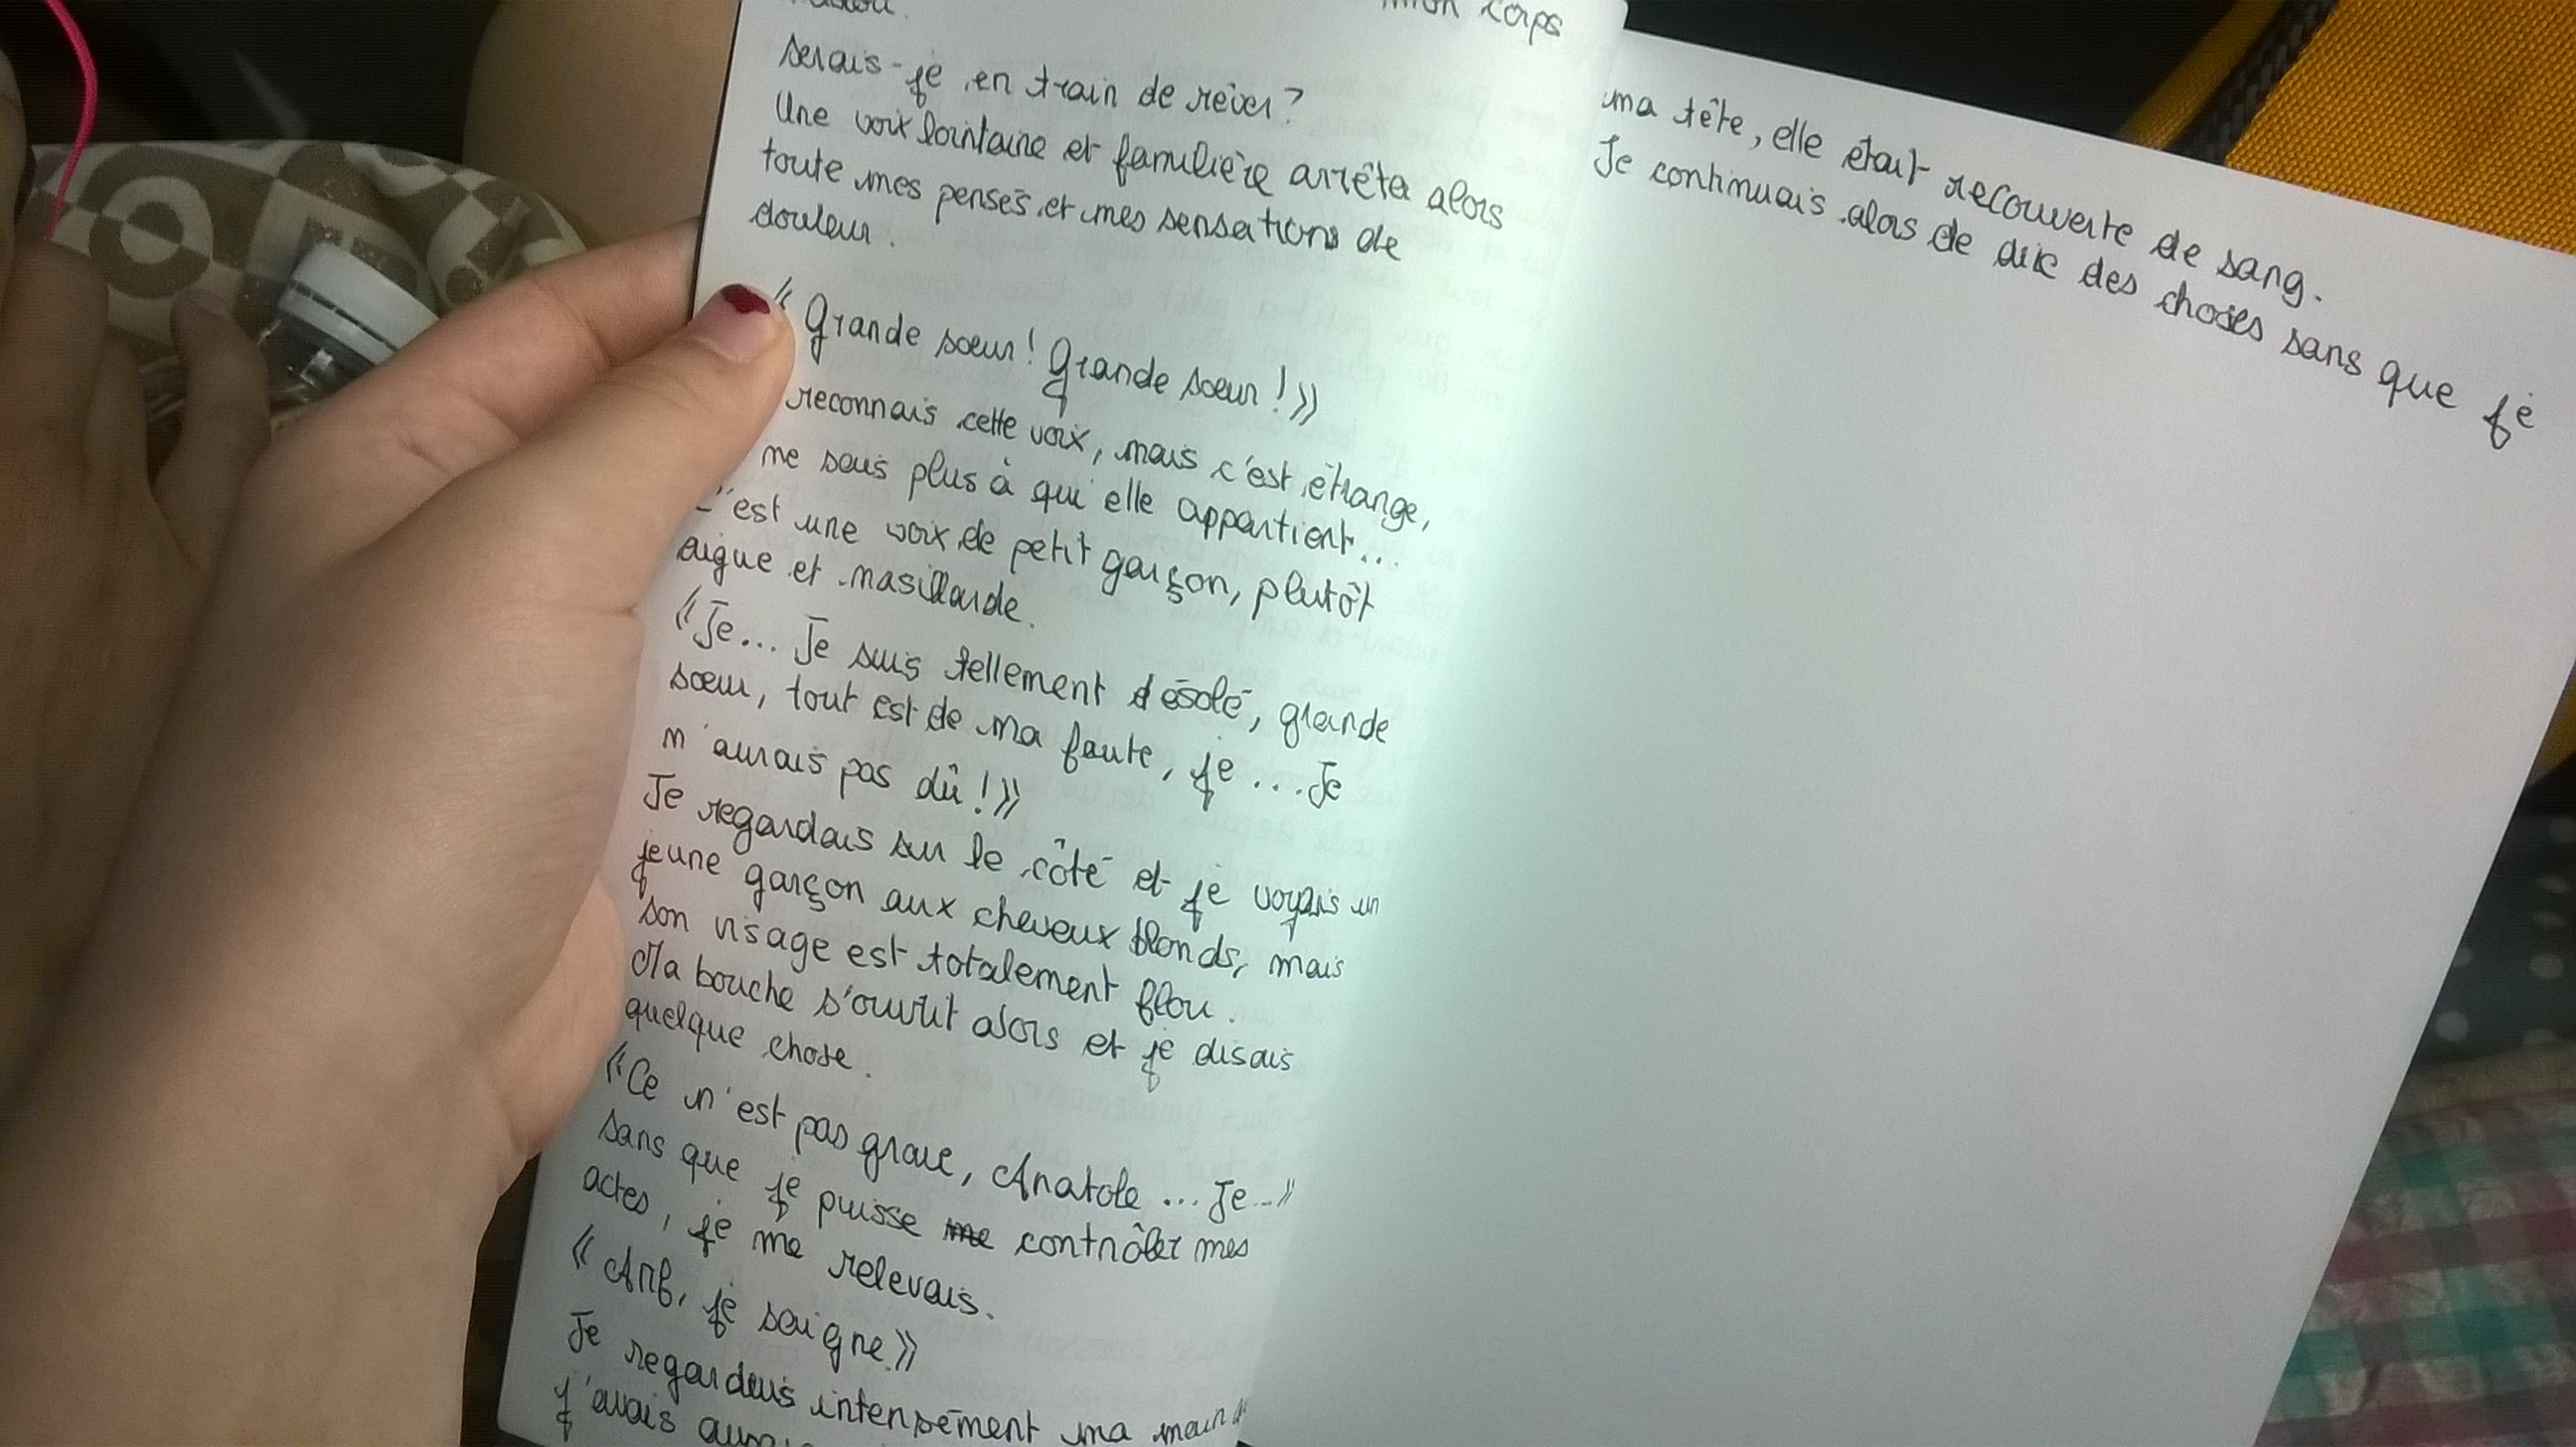 mon corps
serais-je en train de rêver?
Une voix lointaine et familière arrêta alors
toute mes pensés et mes sensations de
douleur.
« Grande sœur! Grande sœur! »
reconnais cette voix, mais c'est étrange,
ne sais plus à qui elle appartient...
C'est une voix de petit garçon, plutôt
aigue et nasillarde.
« Je... Je suis tellement désolé, grande
sœur, tout est de ma faute, je... Je
n'aurais pas dû! »
Je regardais sur le côté et je voyais un
jeune garçon aux cheveux blonds, mais
son visage est totalement flou.
Ma bouche s'ouvrit alors et je disais
quelque chose.
« Ce n'est pas grave, Anatole... Je... »
sans que je puisse me contrôler mes
actes, je me relevais.
« Anf, je saigne »
Je regardais intensément ma main
j'avais
ma tête, elle était recouverte de sang.
Je continuais alors de dire des choses sans que je